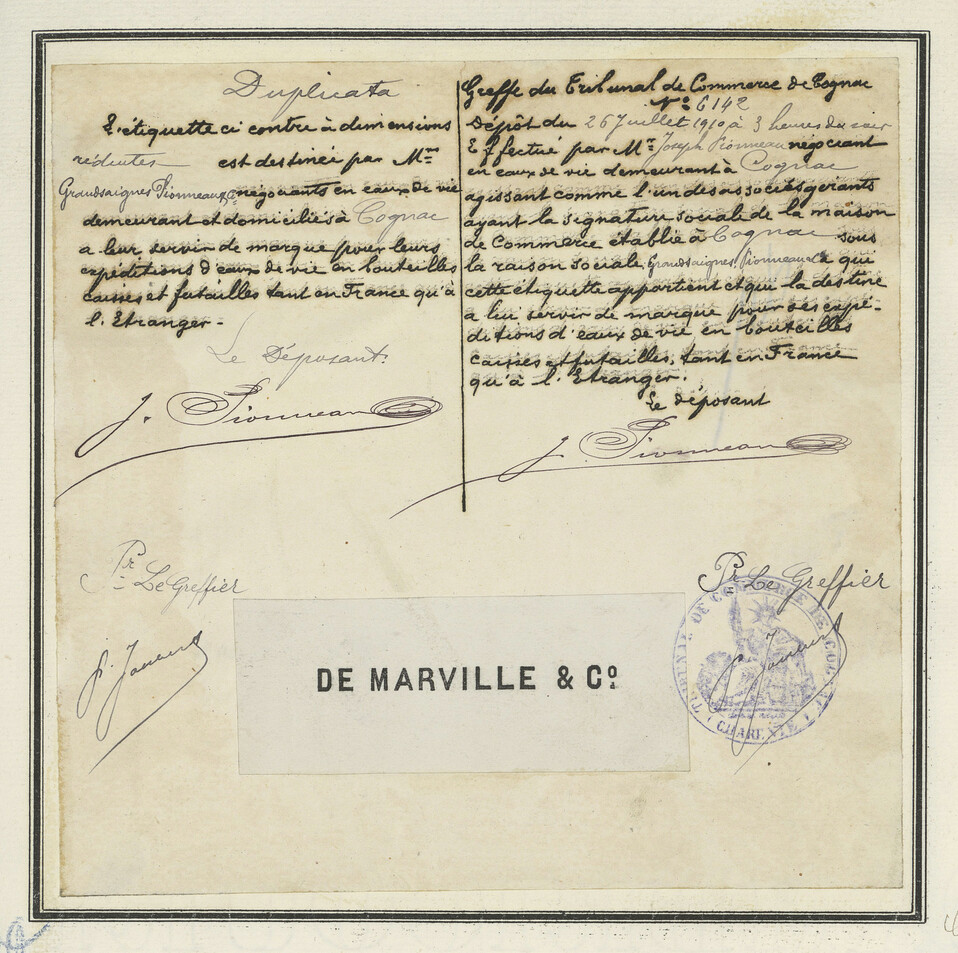 Duplicata
L'étiquette ci contre à dimensions
réduites est destinée par Mrs
Grandsaignes Pionneau & Cie négociants en eaux de vie
demeurant et domiciliés à Cognac
a leur servir de marque pour leurs
expéditions d'eaux de vie en bouteilles
caisses et futailles tant en France qu'à
l'Etranger -
Le Déposant.
J. Pionneau
Greffe du Tribunal de Commerce de Cognac
No 6142
Dépôt du 26 Juillet 1910 à 3 heures du soir
Effectué par Mr Joseph Pionneau négociant
en eaux de vie demeurant à Cognac
agissant comme l'un des associés gérants
ayant la signature sociale de la maison
de Commerce établie à Cognac sous
la raison sociale Grandsaignes, Pionneau & Cie qui
cette étiquette appartient et qui la destine
a lui servir de marque pour ses expé-
ditions d'eaux de vie en bouteilles
caisses et futailles, tant en France
qu'à l'Etranger.
Le déposant
J. Pionneau
Pr Le Greffier
Pr Le Greffier
DE MARVILLE & Co.
TRIBUNAL DE COMMERCE DE COGNAC
(CHARENTE)